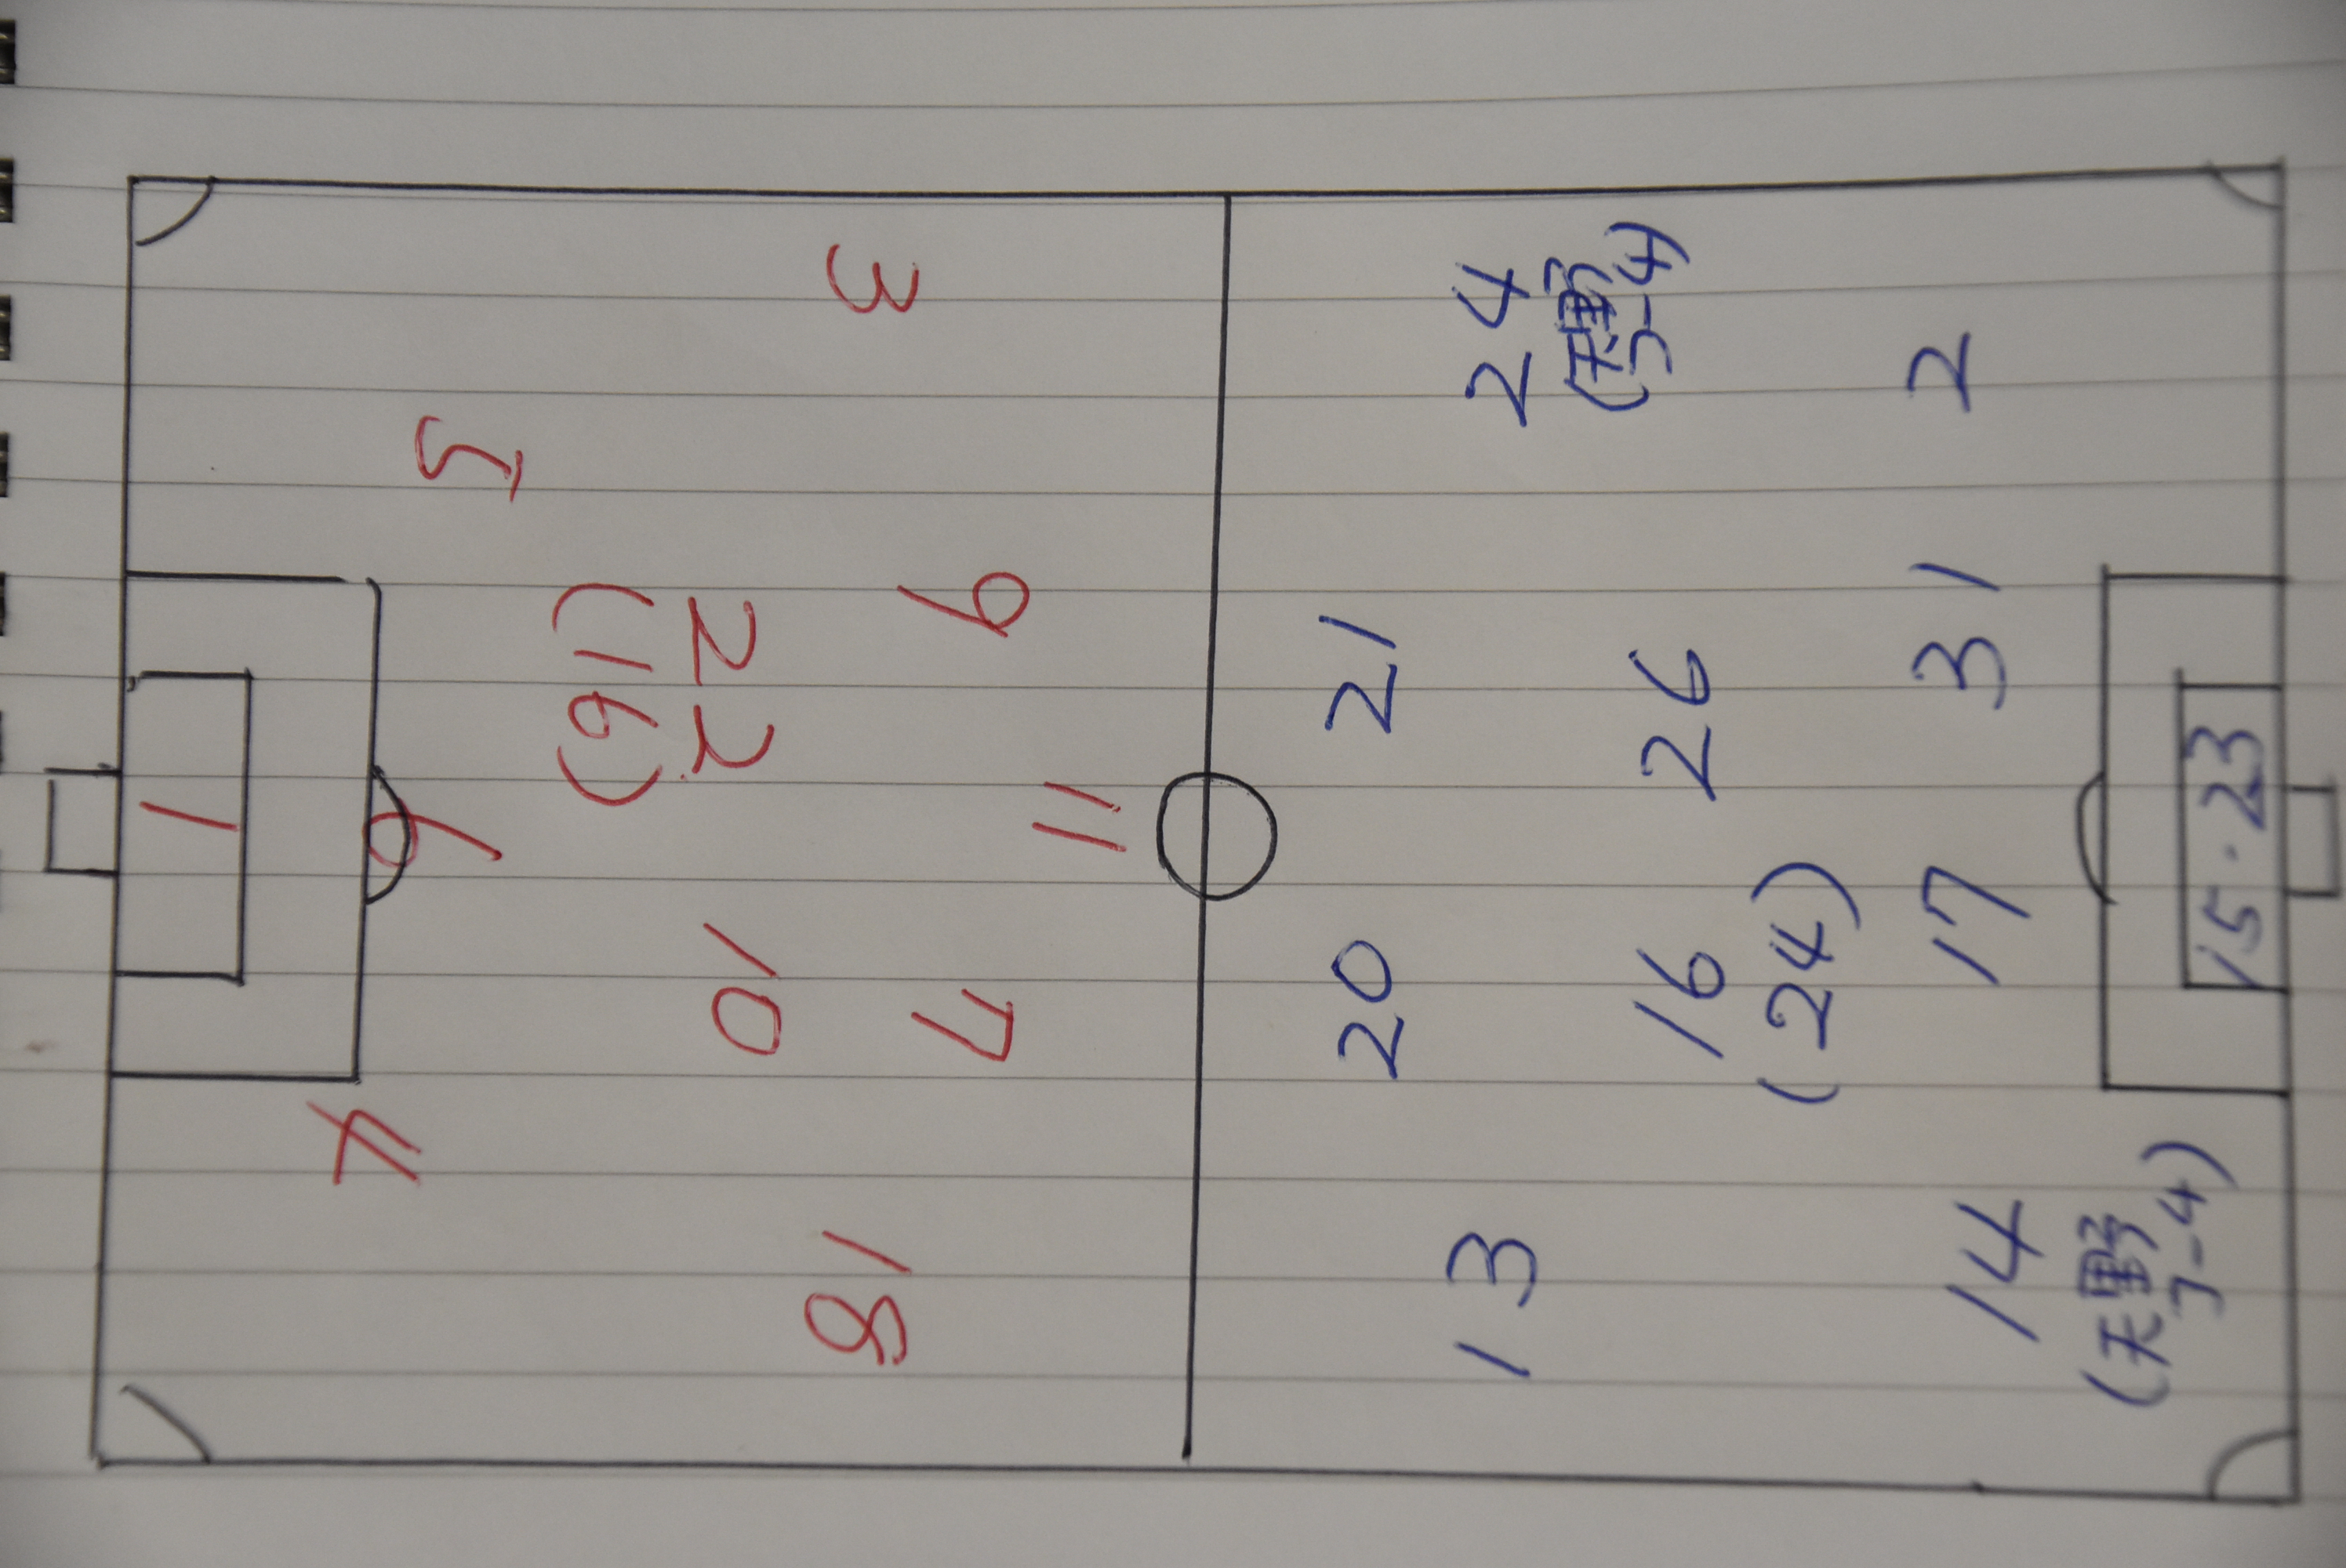 1
6
4
5
10
22
(16)
18
3
7
9
11
20
21
13
24
(天野
コーチ)
16
26
(24)
14
17
31
2
(天野
コーチ)
15・23